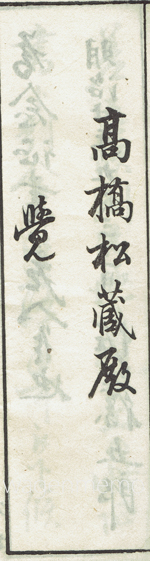 高橋松蔵殿
覺